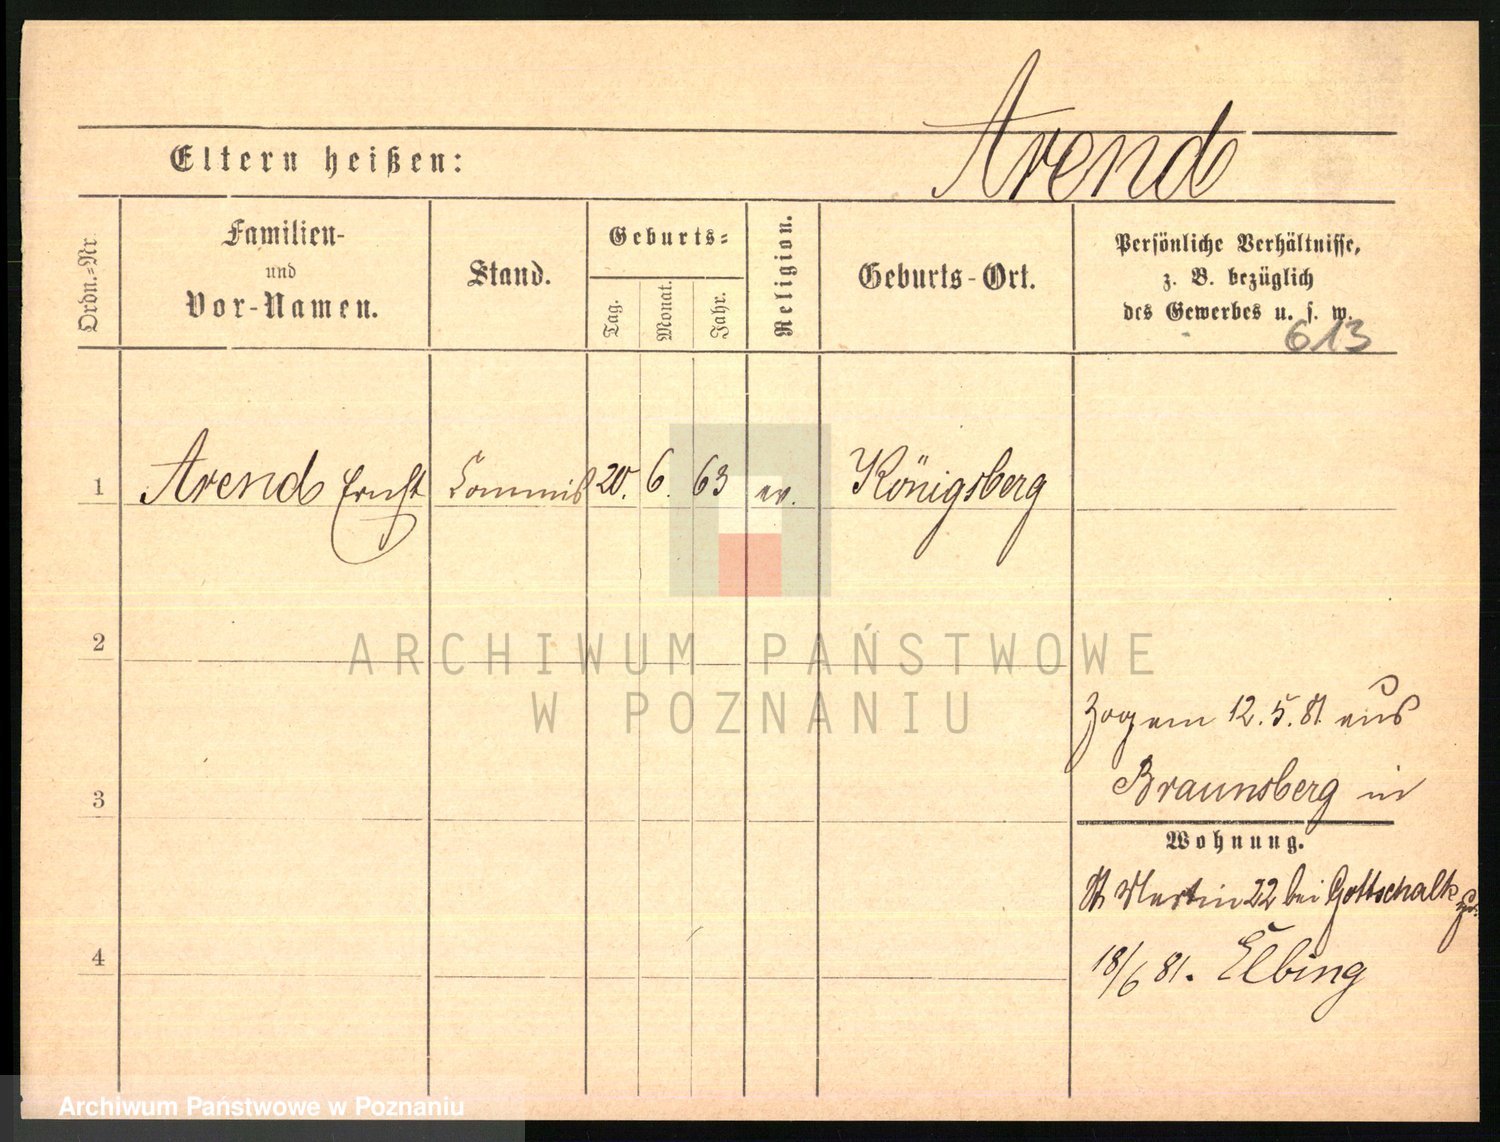 Arend
Eltern heißen:
Ordn.-Nr.
Familien-
und
Vor-Namen.
Stand.
Geburts-
Tag.
Monat.
Jahr.
Religion.
Geburts-Ort.
Persönliche Verhältnisse,
z. B. bezüglich
des Gewerbes u. s. w.
613
1 Arend Ernst Commis 20. 6. 63 ev. Königsberg
2
ARCHIWUM PAŃSTWOWE
W POZNANIU
Zog am 12. 5. 81 aus
Braunsberg in
3
Wohnung.
St Martin 22 bei Gottschalk
4
18/6 81. Elbing
Archiwum Państwowe w Poznaniu